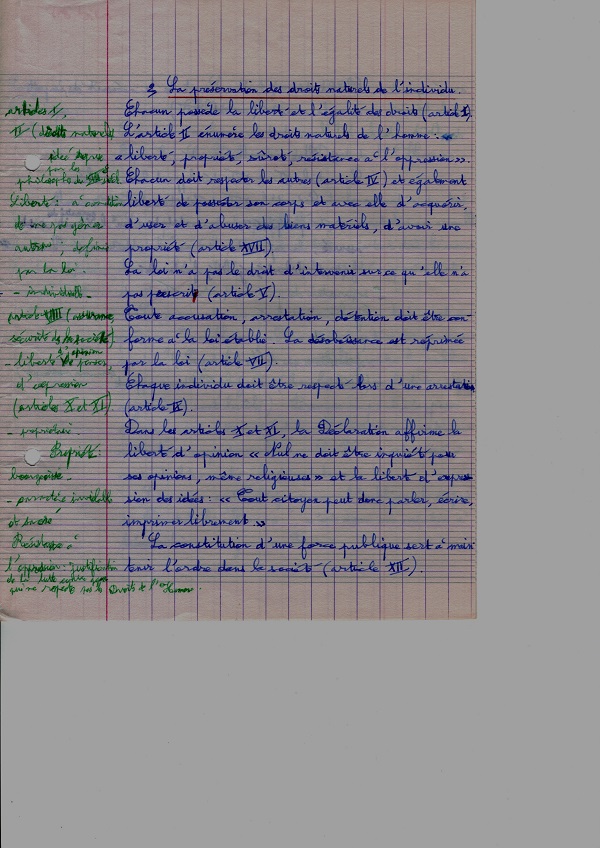 3. La préservation des droits naturels de l'individu.
Chacun possède la liberté et l'égalité des droits (article I).
L'article II énumère les droits naturels de l'homme :
« liberté, propriété, sûreté, résistance à l'oppression ».
Chacun doit respecter les autres (article IV) et également
liberté de posséder son corps et avec elle d'acquérir,
d'user et d'abuser des biens matériels, d'avoir une
propriété (article XVII).
La loi n'a pas le droit d'intervenir sur ce qu'elle n'a
pas prescrit (article V).
Toute accusation, arrestation, détention doit être con-
forme à la loi établie. La désobéissance est réprimée
par la loi (article VII).
Chaque individu doit être respecté lors d'une arrestation
(article IX).
Dans les articles X et XI, la Déclaration affirme la
liberté d'opinion « Nul ne doit être inquiété pour
ses opinions, même religieuses » et la libert d'expres-
sion des idées : « Tout citoyen peut donc parler, écrire,
imprimer librement. »
La constitution d'une force publique sert à main
tenir l'ordre dans la société (article XII).
articles I,
II (droits naturels
idée
philosophes du
liberté : à condition
de ne pas gêner
autrui ; définie
par la loi.
- individuelle
article (assurance
sécurité de la société)
- liberté d'opinion de penser,
d'expression
(articles X et XI)
- propriétaire
Propriété :
bourgeoise.
- inviolable
et sacré
Résistance à
l'oppression : justification
de la lutte contre
qui ne respecte pas les Droits de l'Homme.